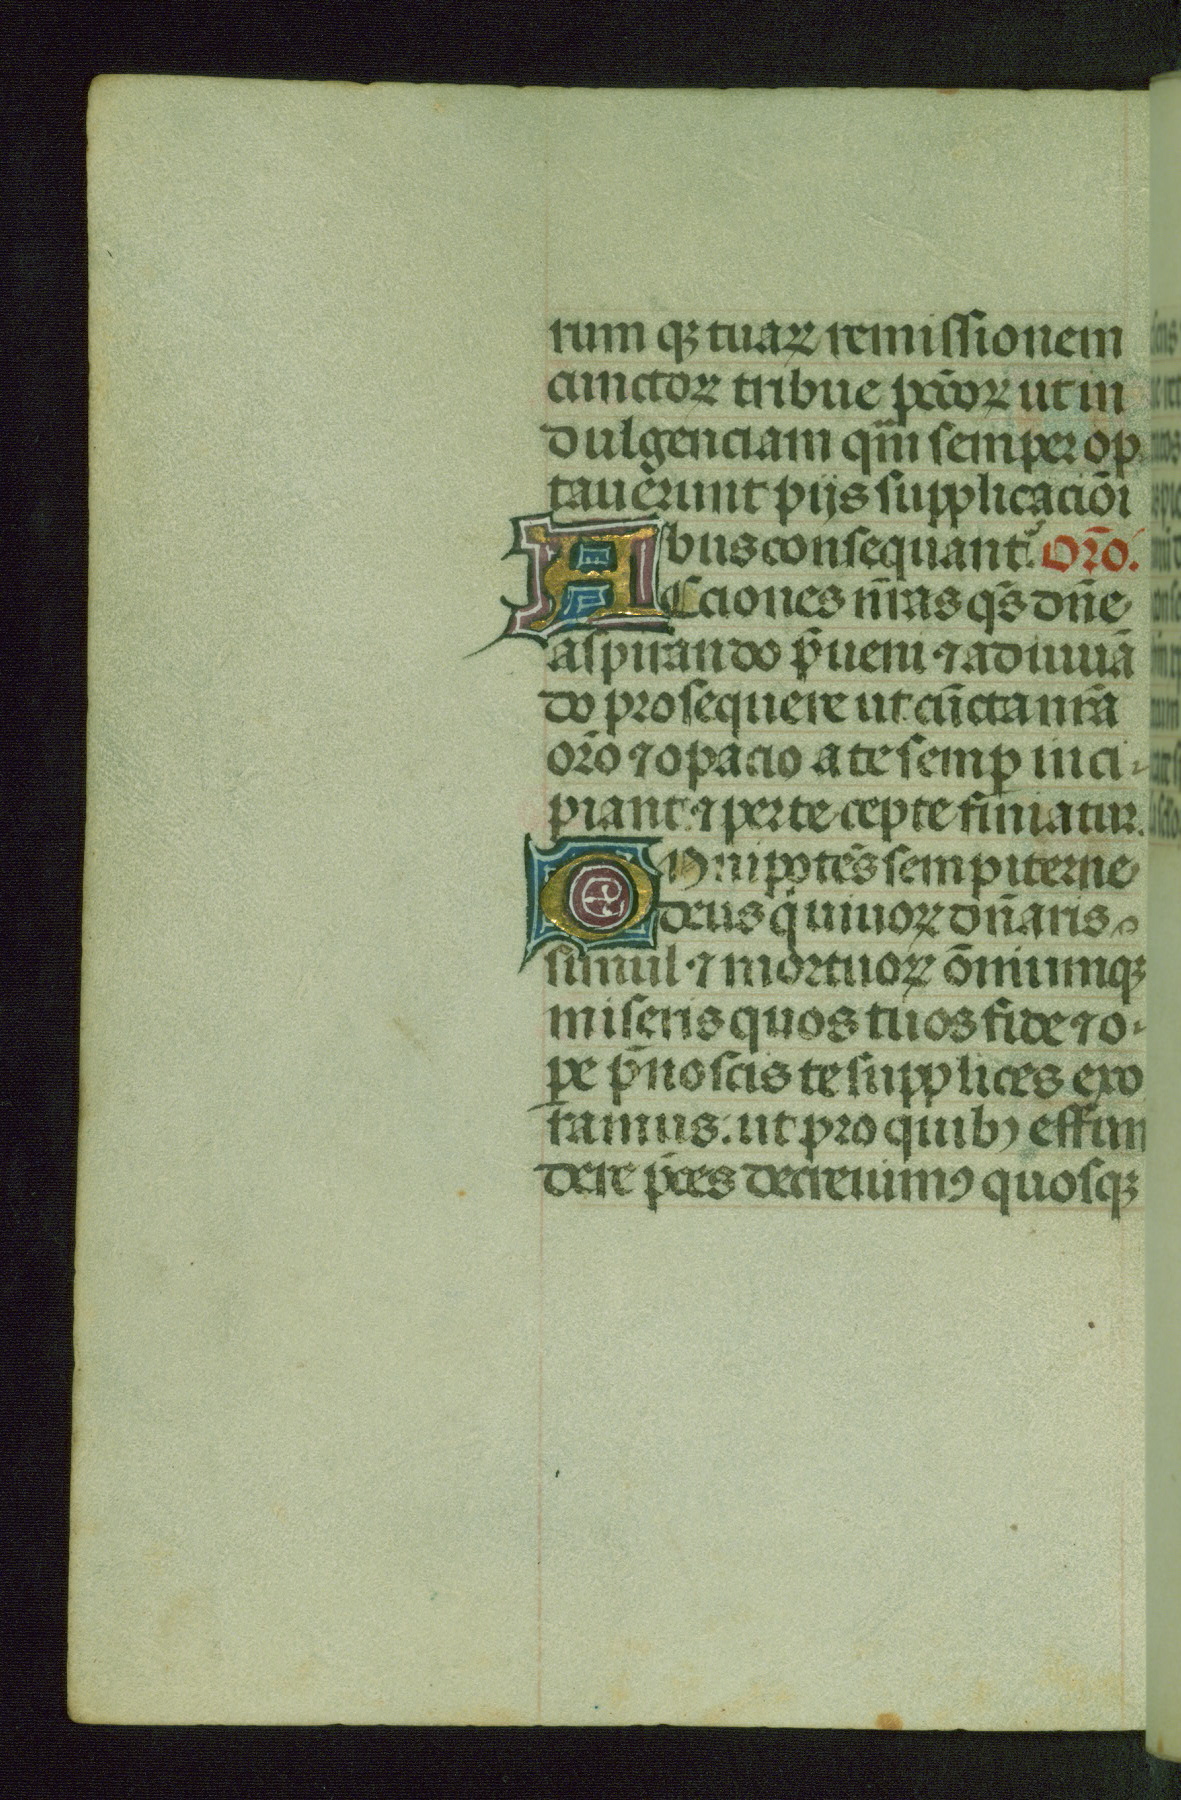 rum qꝫ tuaꝝ remissionem
cunctoꝝ tribue pccōꝝ ut in
dulgenciam qm̄ semper op
tauerunt pijs supplicaciōi
bus consequant᷑. Orō.
Acciones nr̄as qs̄ dn̄e
aspirando p̄ueni ⁊ adiuuā
do prosequere ut cūcta nrā
orō ⁊ opacio a te semp inci-
piant ⁊ per te cepte finiatur.
Omnipotēs sempiterne
deus q̇ uiuoꝝ dn̄aris
simul ⁊ mortuoꝝ ōniumqꝫ
miseris quos tuos fide ⁊ o-
pe p̄noscis te supplices exo
ramus. ut pro quibꝰ effun
dere p̄ces decreuimꝰ quosqꝫ